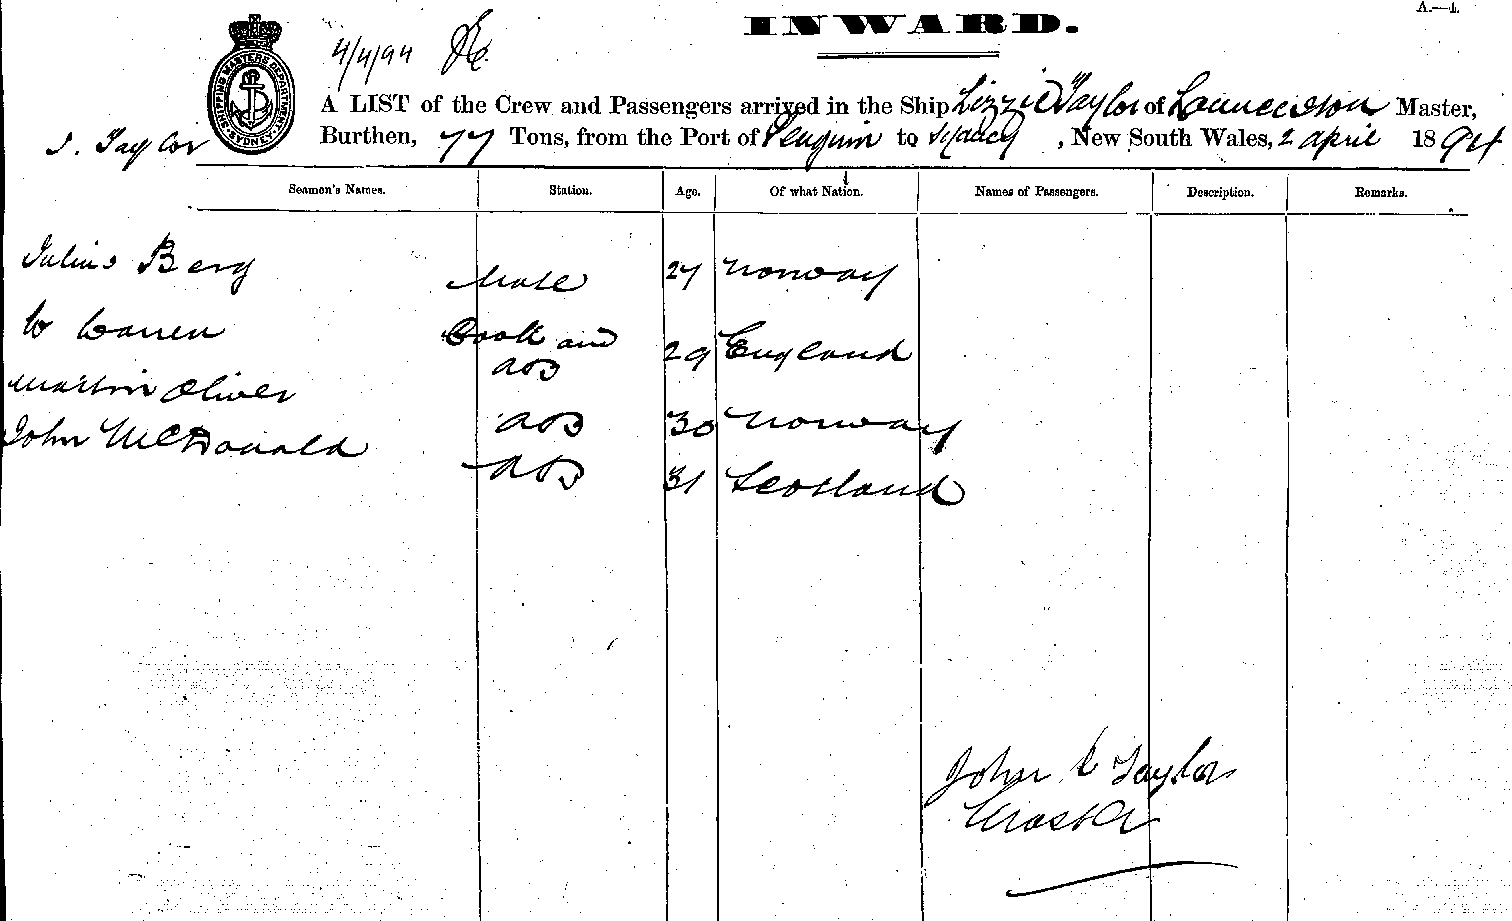 A.—1.
INWARD.
4/4/94
SHIPPING MASTERS DEPARTMENT SYDNEY
A LIST of the Crew and Passengers arrived in the Ship Lizzie Taylor of Launceston Master,
J. Taylor Burthen, 77 Tons, from the Port of Penguin to Sydney, New South Wales, 2 April 1894
Seamen's Names. Station. Age. Of what Nation. Names of Passengers. Description. Remarks.
Julius Berg Mate 27 Norway
W Warren Cook and AB 29 England
Martin Oliver AB 30 Norway
John McDonald AB 31 Scotland
John C Taylor
Master